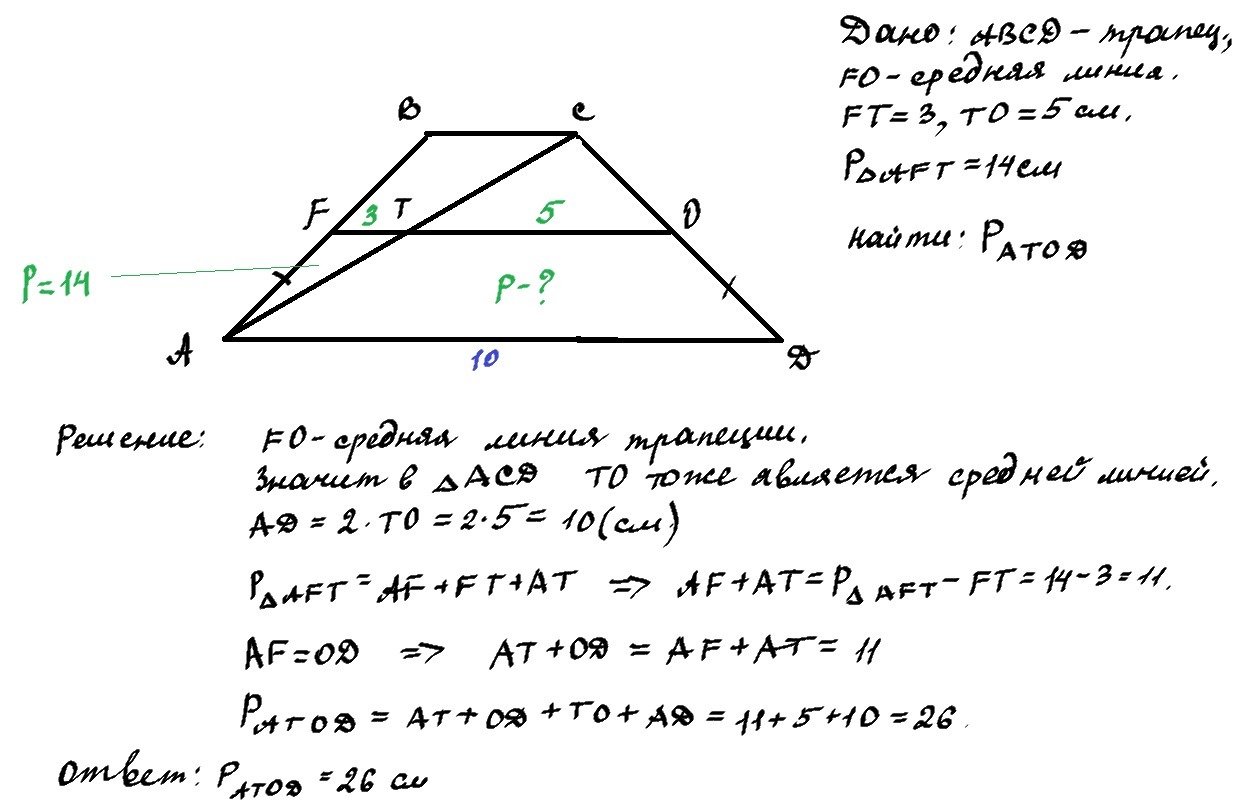 Дано: ABCD – трапец.,
FO - средняя линия.
FT = 3, TO = 5 см.
P△AFT = 14 см
найти: PATOD
B C
F 3 T 5 O
P=14
P-?
A 10 D
Решение: FO - средняя линия трапеции.
Значит в △ACD TO тоже является средней линией.
AD = 2·TO = 2·5 = 10 (см)
P△AFT = AF + FT + AT => AF + AT = P△AFT – FT = 14 – 3 = 11.
AF = OD => AT + OD = AF + AT = 11
PATOD = AT + OD + TO + AD = 11 + 5 + 10 = 26.
Ответ: PATOD = 26 см